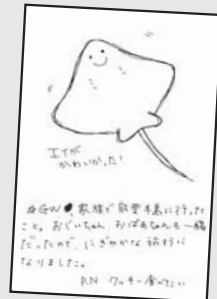 エイが
かわいかった!
☆GW 家族で能登島に行った
こと。おじいちゃん、おばあちゃんも一緒
だったので、にぎやかな旅行に
なりました。
P.N クッキー食べたい